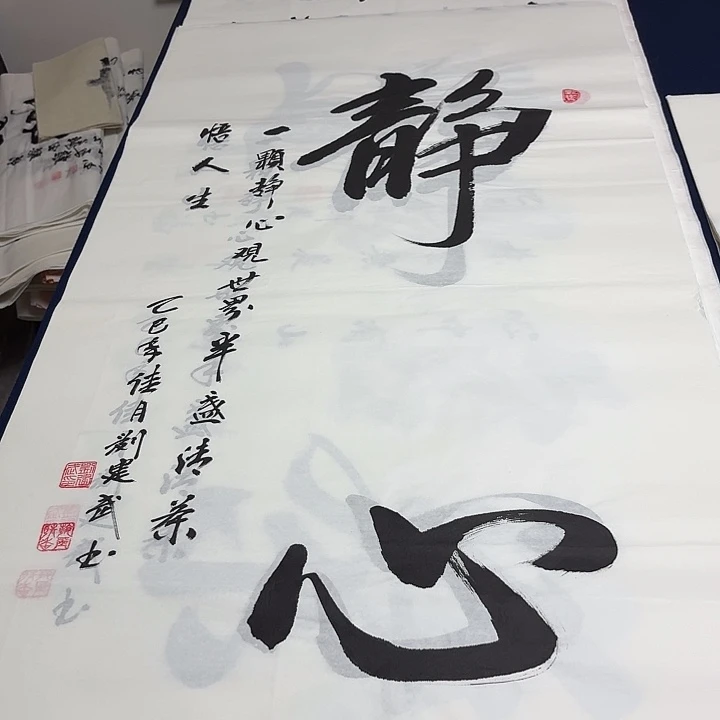 静心
一颗静心观世界半盏清茶
悟人生
乙巳年佳月劉建武书